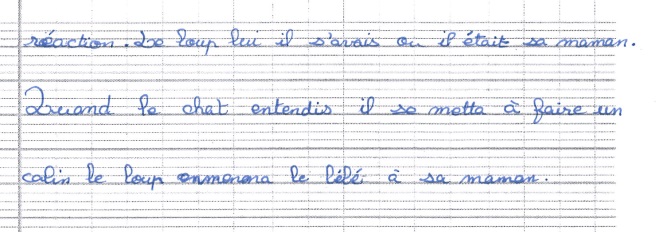 réaction. Le loup lui il s'avais ou il était sa maman.
Quand le chat entendis il se metta à faire un
calin le loup enmenena le bébé à sa maman.